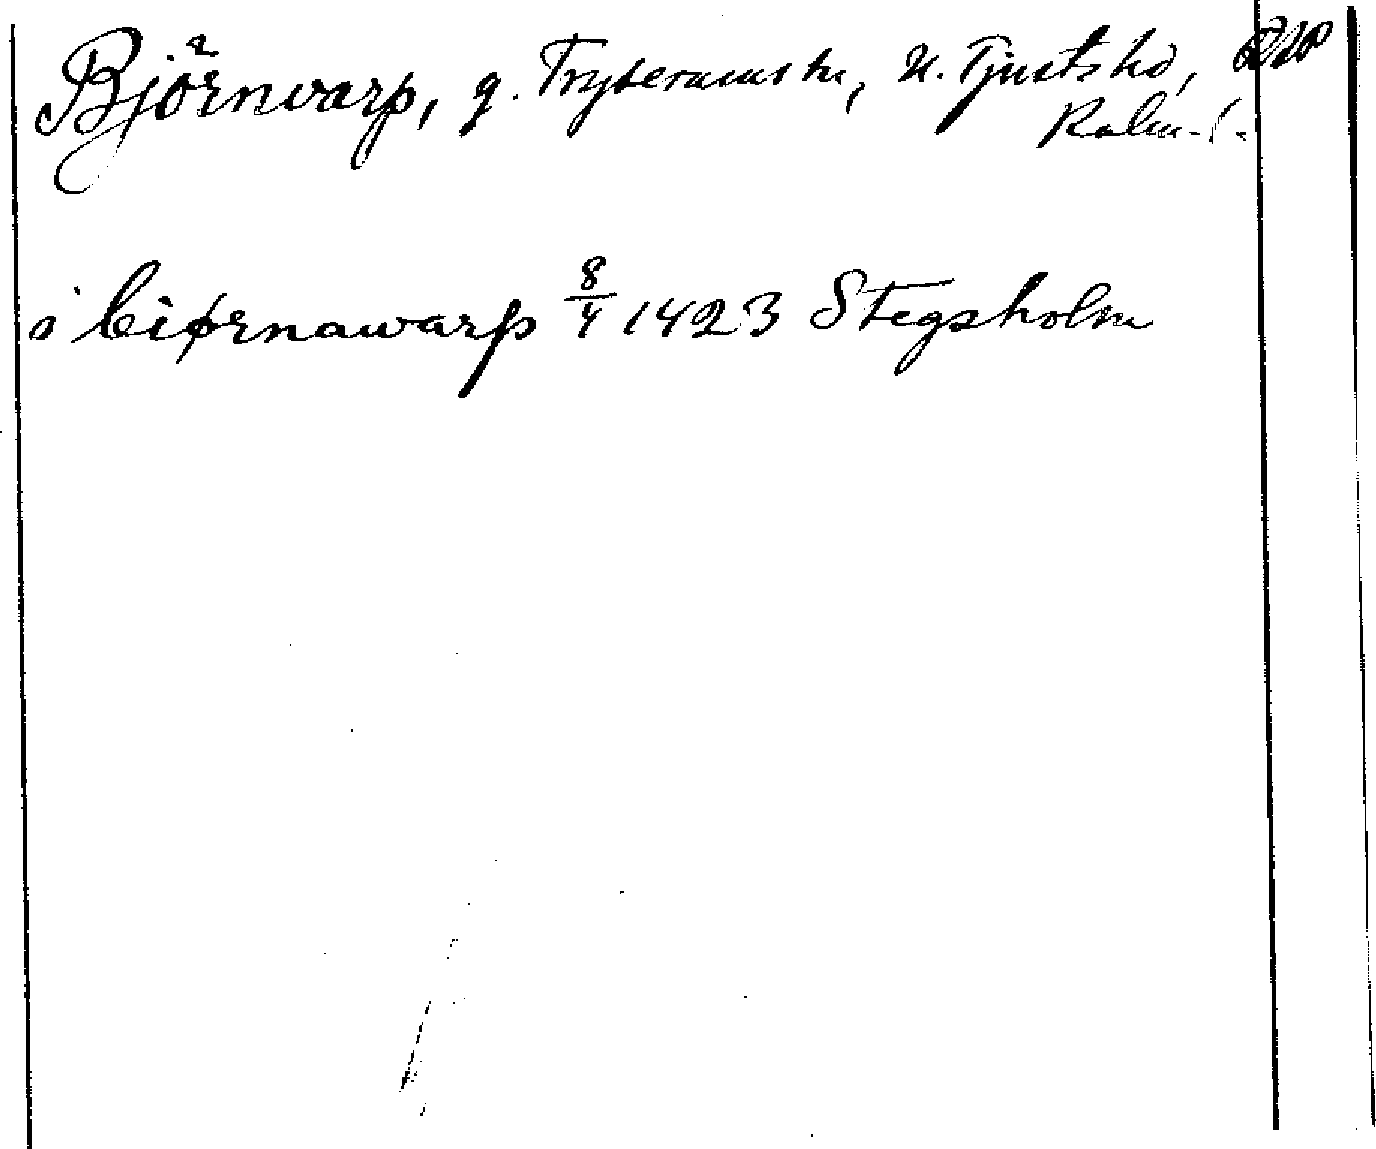 Björnvarp, g. Tryserums sn, N. Tjusts hd,
Kalm. l.
i biørnawarp 8/4 1423 Stegsholm